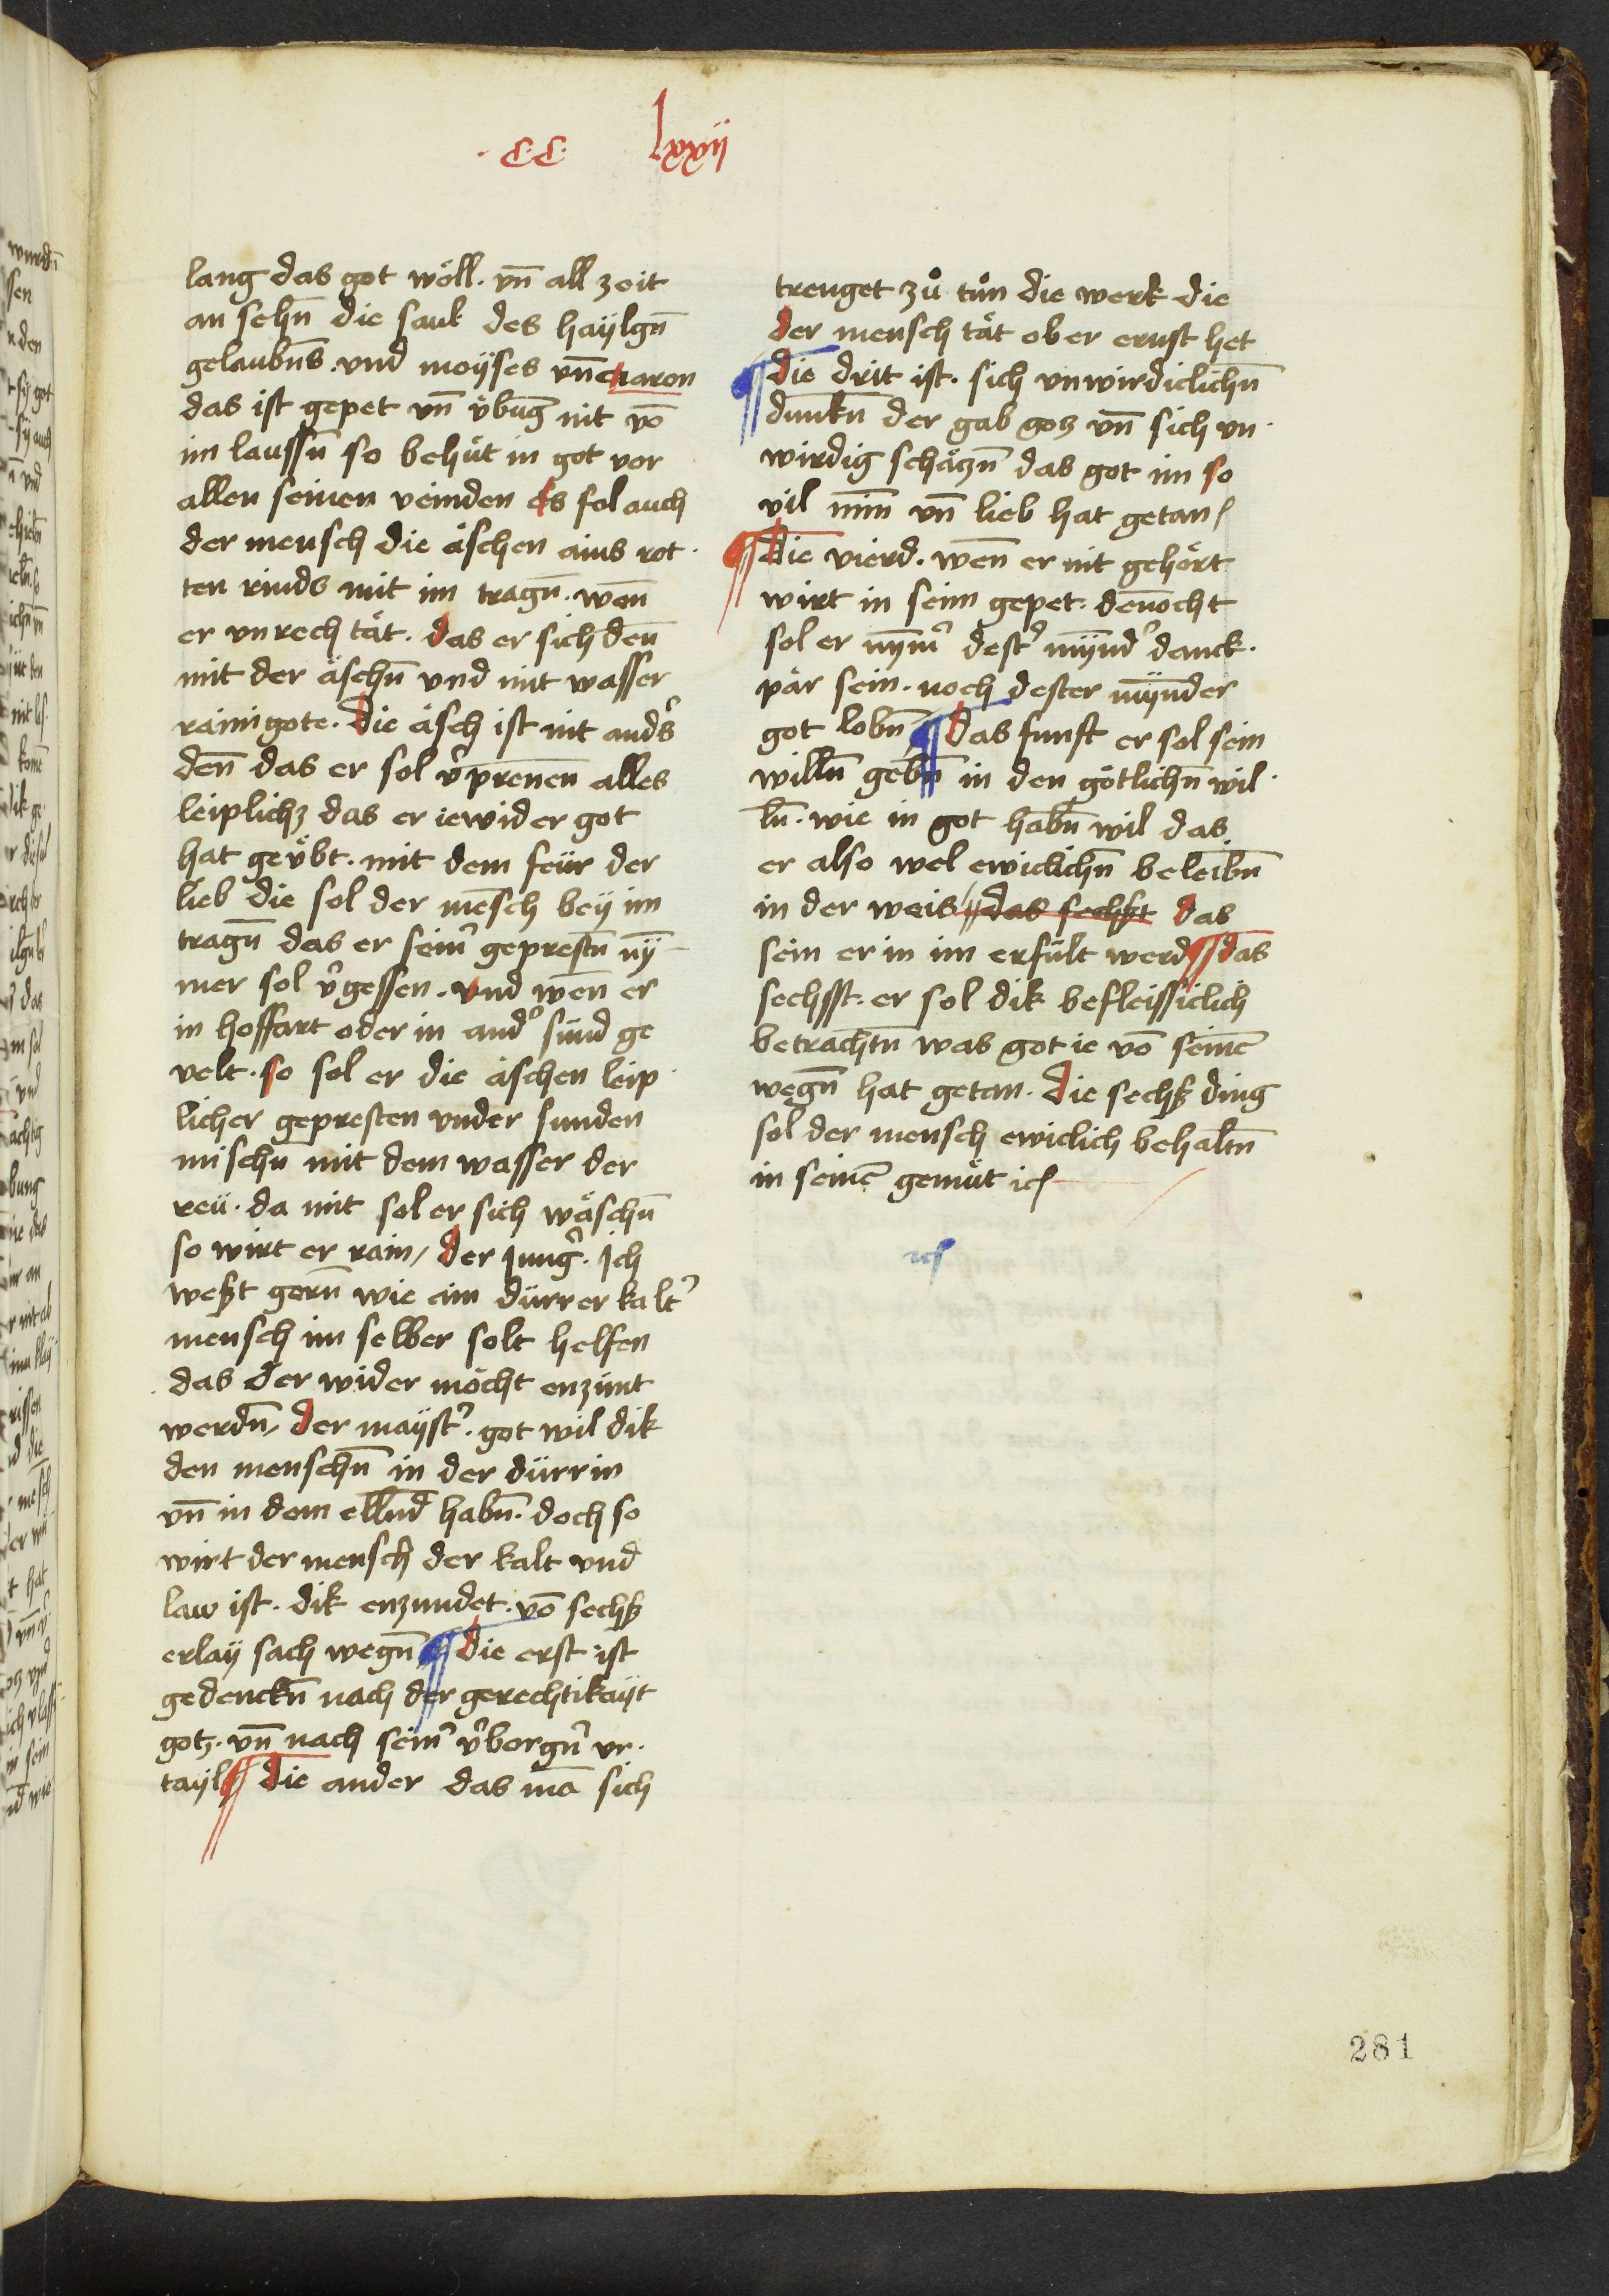 ·C·C· lxxij
lang das got wöll. vn̄ all zeit
an sehn̄ die saul des haÿlgn̄
gelaubn̄s. vnd moÿses vn̄ aaron
das ist gepet vn̄ v̈bung nit vō
im laussn̄ so behüt in got vor
allen seinen veinden es sol auch
der mensch die äschen ains rot·
ten rinds mit im tragn̄. wen̄
er vnrech tät. das er sich den̄
mit der äschn̄ vnd mit wasser
rainigote. Die äsch ist nit anders̉
den̄ das er sol v̉prenen̄ alles
leiplichz das er ie wider got
hat gev̈bt. mit dem feür der
lieb die sol der mēsch beÿ im
tragn̄ das er seinr̉ geprestn̄ nÿ̄
mer sol v̉gessen. vnd wen̄ er
in hoffart oder in and̉ sünd ge
velt. so sol er die äschen leip·
licher gepresten vnder sunden
mischn mit dem wasser der
reü. da mit sol er sich wäschn̄
so wirt er rain / der jung̉. jch
weßt gern̄ wie ein dürrer kalt̉
mensch im selber solt helfen
das der wider möcht enzünt
werdn̄ / der maÿst̉. got wil dik
den menschn̄ in der dürrin
vn̄ in dem ellnd̄ habn̄. doch so
wirt der mensch der kalt vnd
law ist. dik enzundet. vō sechß
erlaÿ sach wegn̄ ¶ die erst ist
gedenckn̄ nach der gerechtikaÿt
gotz. vn̄ nach seinr̉ v̉borgn̄ vr·
taÿl ¶ die ander das mā sich
trenget zů tůn die werk die
der mensch tät ob er ernst het
¶ die drit ist. sich vnwirdiclichn̄
dunkn̄ der gab gotz vn̄ sich vn·
wirdig schätzn̄ das got im so
vil min̄ vn̄ lieb hat getan /
¶ Die vierd. wen̄ er nit gehört
wirt in seim gepet. den̄ocht
sol er nÿm̉ dest̉ mÿnd̉ danck·
pär sein. noch dester mÿnder
got lobn̄ ¶ das funft er sol sein
willn̄ gebn̄ in den götlichn̄ wil·
ln̄. wie in got habn̄ wil das
er also wel ewiclichn̄ beleibn̄
in der weis ¶ das sechßt das
sein er in im erfült werd ¶ das
sechsst. er sol dik befleissiclich
betrachtn̄ was got ie vō seinē
wegn̄ hat getan. Die sechß ding
sol der mensch ewiclich behaltn̄
in seinē gemüt ic̄
281